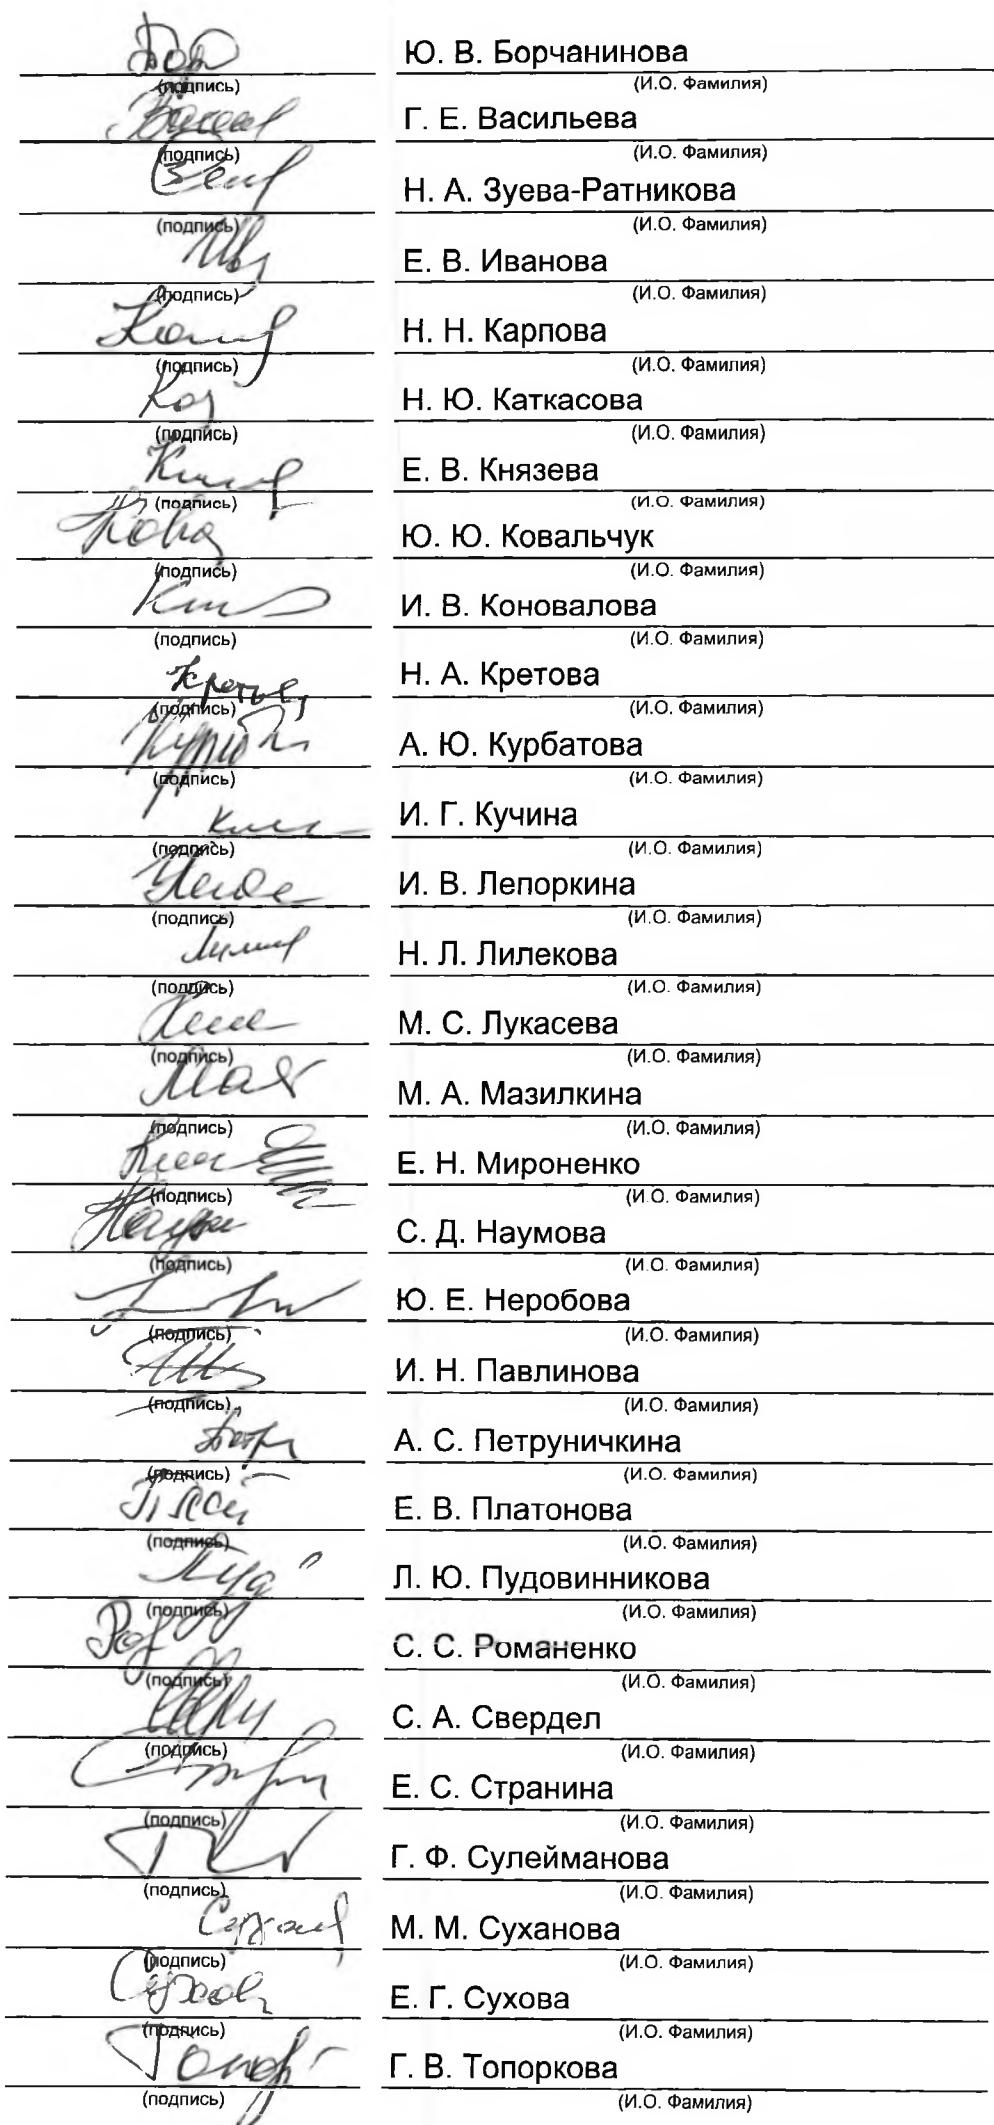 Ю. В. Борчанинова
(подпись) (И.О. Фамилия)
Г. Е. Васильева
(подпись) (И.О. Фамилия)
Н. А. Зуева-Ратникова
(подпись) (И.О. Фамилия)
Е. В. Иванова
(подпись) (И.О. Фамилия)
Н. Н. Карпова
(подпись) (И.О. Фамилия)
Н. Ю. Каткасова
(подпись) (И.О. Фамилия)
Е. В. Князева
(подпись) (И.О. Фамилия)
Ю. Ю. Ковальчук
(подпись) (И.О. Фамилия)
И. В. Коновалова
(подпись) (И.О. Фамилия)
Н. А. Кретова
(подпись) (И.О. Фамилия)
А. Ю. Курбатова
(подпись) (И.О. Фамилия)
И. Г. Кучина
(подпись) (И.О. Фамилия)
И. В. Лепоркина
(подпись) (И.О. Фамилия)
Н. Л. Лилекова
(подпись) (И.О. Фамилия)
М. С. Лукасева
(подпись) (И.О. Фамилия)
М. А. Мазилкина
(подпись) (И.О. Фамилия)
Е. Н. Мироненко
(подпись) (И.О. Фамилия)
С. Д. Наумова
(подпись) (И.О. Фамилия)
Ю. Е. Неробова
(подпись) (И.О. Фамилия)
И. Н. Павлинова
(подпись) (И.О. Фамилия)
А. С. Петруничкина
(подпись) (И.О. Фамилия)
Е. В. Платонова
(подпись) (И.О. Фамилия)
Л. Ю. Пудовинникова
(подпись) (И.О. Фамилия)
С. С. Романенко
(подпись) (И.О. Фамилия)
С. А. Свердел
(подпись) (И.О. Фамилия)
Е. С. Странина
(подпись) (И.О. Фамилия)
Г. Ф. Сулейманова
(подпись) (И.О. Фамилия)
М. М. Суханова
(подпись) (И.О. Фамилия)
Е. Г. Сухова
(подпись) (И.О. Фамилия)
Г. В. Топоркова
(подпись) (И.О. Фамилия)